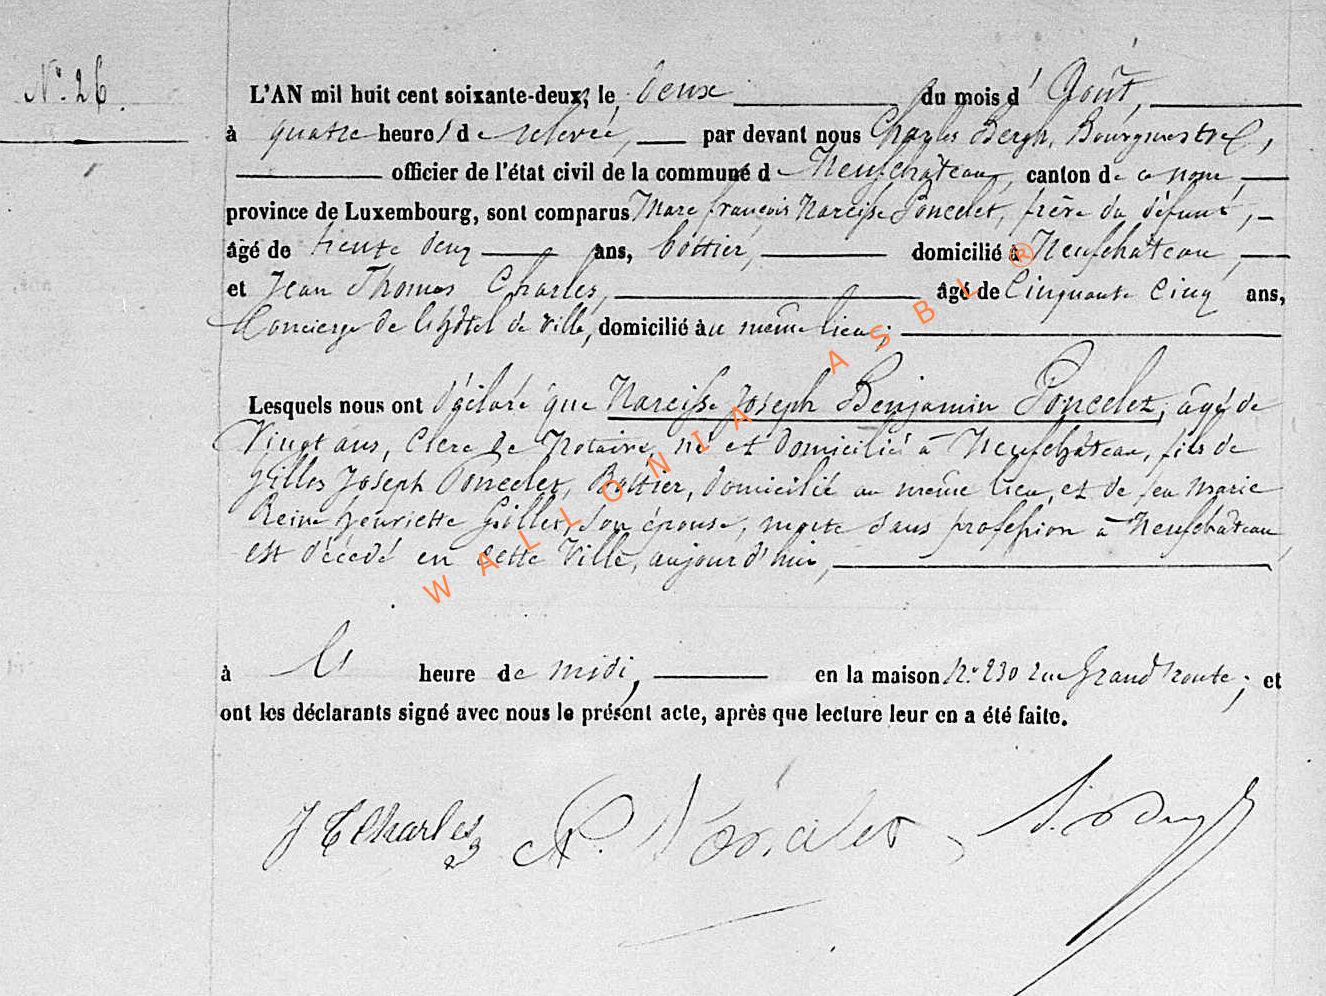 N° 26.
L'AN mil huit cent soixante-deux, le deux du mois d'Août,
à quatre heures de relevée, par devant nous Charles Bergh, Bourgmestre,
officier de l'état civil de la commune de Neufchâteau, canton de ce nom,
province de Luxembourg, sont comparus Marc françois Narcisse Poncelet, frère du défunt,
âgé de trente deux ans, bottier, domicilié à Neufchâteau,
et Jean Thomas Charles, âgé de Cinquante Cinq ans,
Concierge de l'hôtel de Ville, domicilié au même lieu;
Lesquels nous ont déclaré que Narcisse Joseph Benjamin Poncelet, âgé de
Vingt ans, Clerc de Notaire, né et domicilié à Neufchâteau, fils de
Gilles Joseph Poncelet, Bottier, domicilié au même lieu, et de feu Marie
Reine henriette Gillet, son épouse, morte sans profession à Neufchâteau,
est décédé en cette Ville, aujourd'hui,
à heure de midi, en la maison N° 230 rue Grand'route; et
ont les déclarants signé avec nous le présent acte, après que lecture leur en a été faite.
J T Charles N. Poncelet
WALLONIA ASBL ®